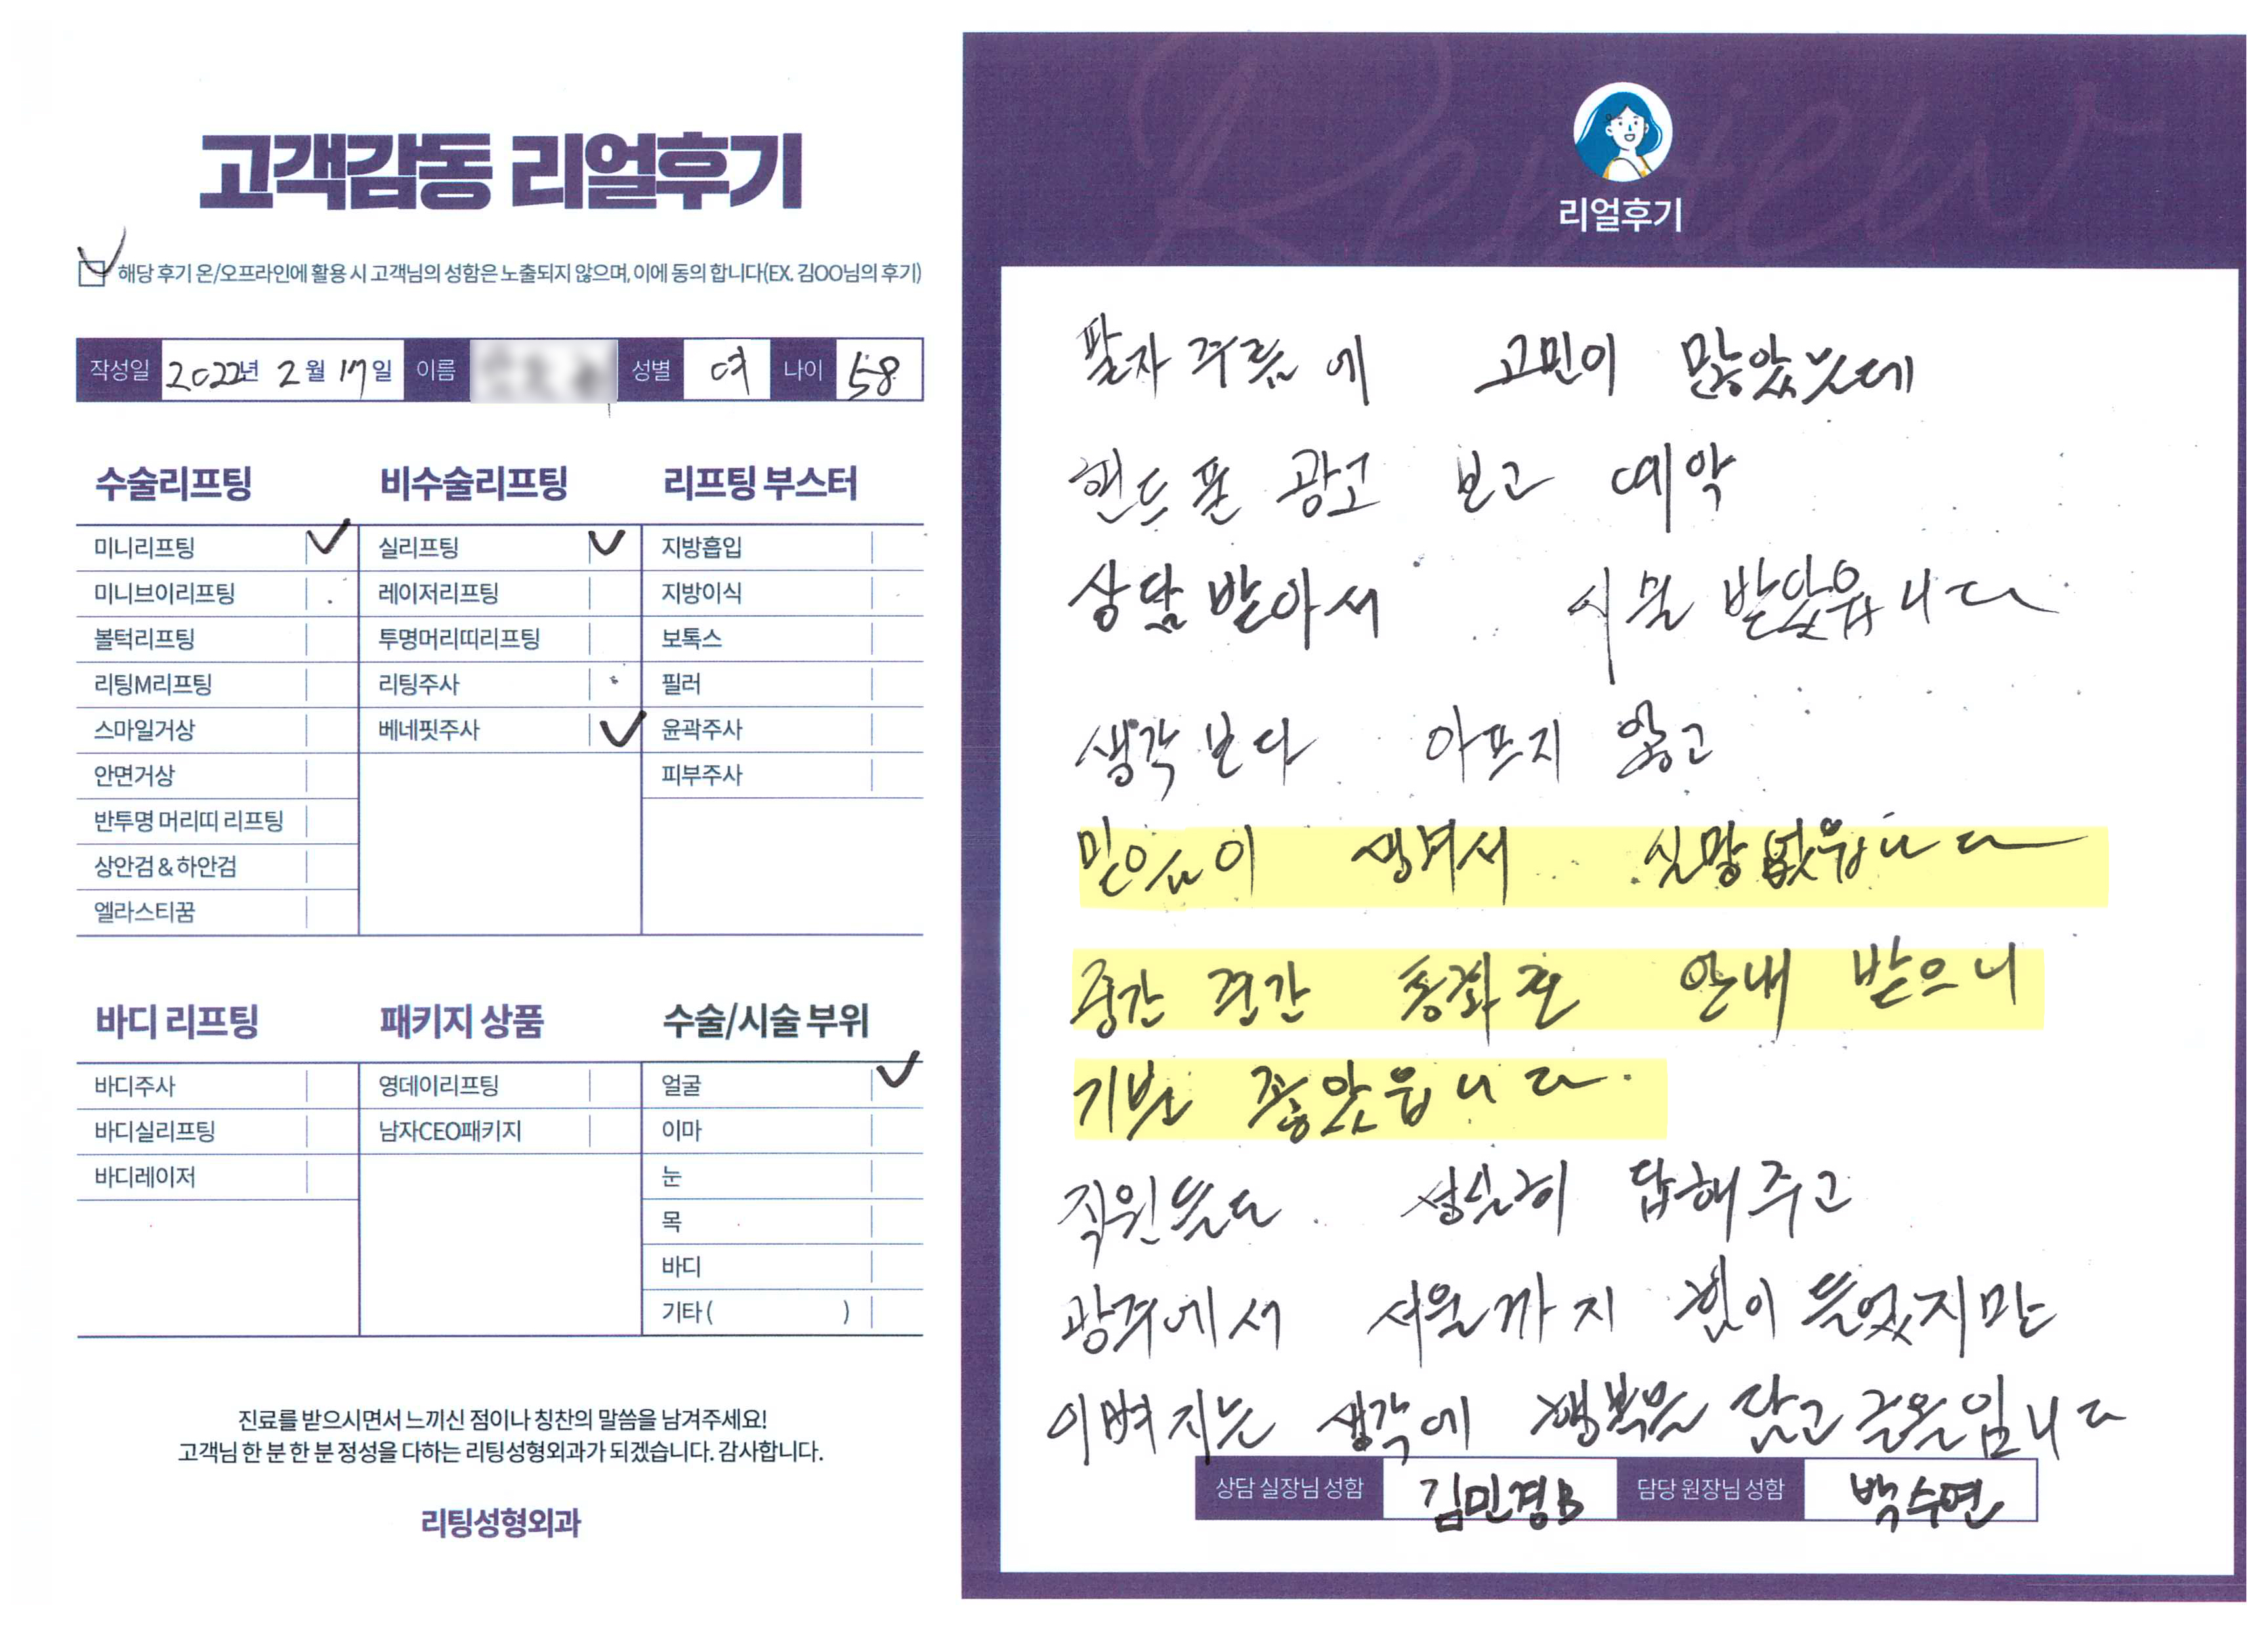 고객감동 리얼후기
해당 후기 온/오프라인에 활용 시 고객님의 성함은 노출되지 않으며, 이에 동의 합니다(EX. 김OO님의 후기)
작성일 2022년 2월 17일 이름 성별 여 나이 58
수술리프팅
미니리프팅
미니브이리프팅
볼턱리프팅
리팅M리프팅
스마일거상
안면거상
반투명 머리띠 리프팅
상안검 & 하안검
엘라스티꿈
비수술리프팅
실리프팅
레이저리프팅
투명머리띠리프팅
리팅주사
베네핏주사
리프팅 부스터
지방흡입
지방이식
보톡스
필러
윤곽주사
피부주사
바디 리프팅
바디주사
바디실리프팅
바디레이저
패키지 상품
영데이리프팅
남자CEO패키지
수술/시술 부위
얼굴
이마
눈
목
바디
기타 ( )
진료를 받으시면서 느끼신 점이나 칭찬의 말씀을 남겨주세요!
고객님 한 분 한 분 정성을 다하는 리팅성형외과가 되겠습니다. 감사합니다.
리팅성형외과
Review
리얼후기
팔자 주름에 고민이 많았눈데
핸드폰 광고 보고 예약
상담 받아서 시술 받았읍니다
생각보다 아프지 않고
믿음이 생겨서 실망없읍니다
중간 중간 통화로 안내 받으니
기분 좋았읍니다.
직원들도 성실히 답해주고
광주에서 서울까지 힘이 들었지만
이뻐지는 생각에 행복을 담고 글올입니다
상담 실장님 성함 김민경B 담당 원장님 성함 박수연